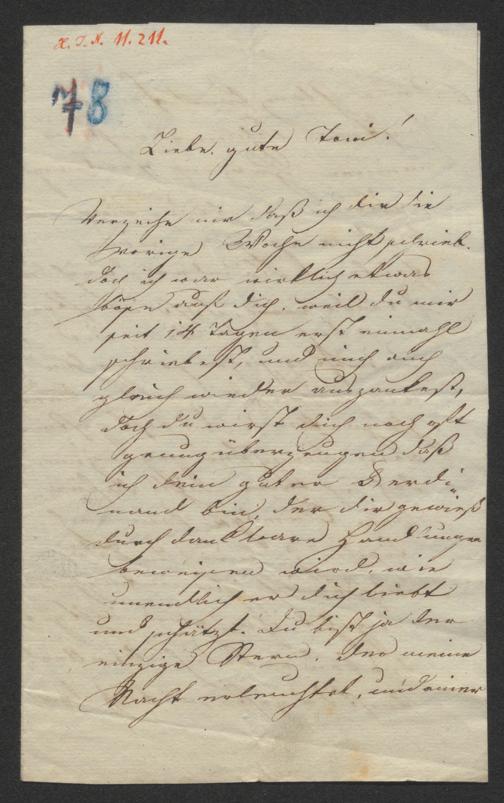 H. I. N. 11.211.
78
Liebe gute Toni!
Verzeihe mir daß ich dir die
vorige Woche nicht schrieb.
doch ich war wirklich etwas
böse auf dich, weil du mir
seit 14 Tagen erst einmahl
schriebest, und mich auch
gleich wieder auszanktest,
doch du wirst dich noch oft
genug überzeugen daß
ich dein guter Ferdi-
nand bin, der dir gewiß
durch dankbare Handlungen
beweisen wird, wie
unendlich er dich liebt
und schätzt. Du bist ja der
einzige Stern, der meine
Nacht erleuchtet, und einer